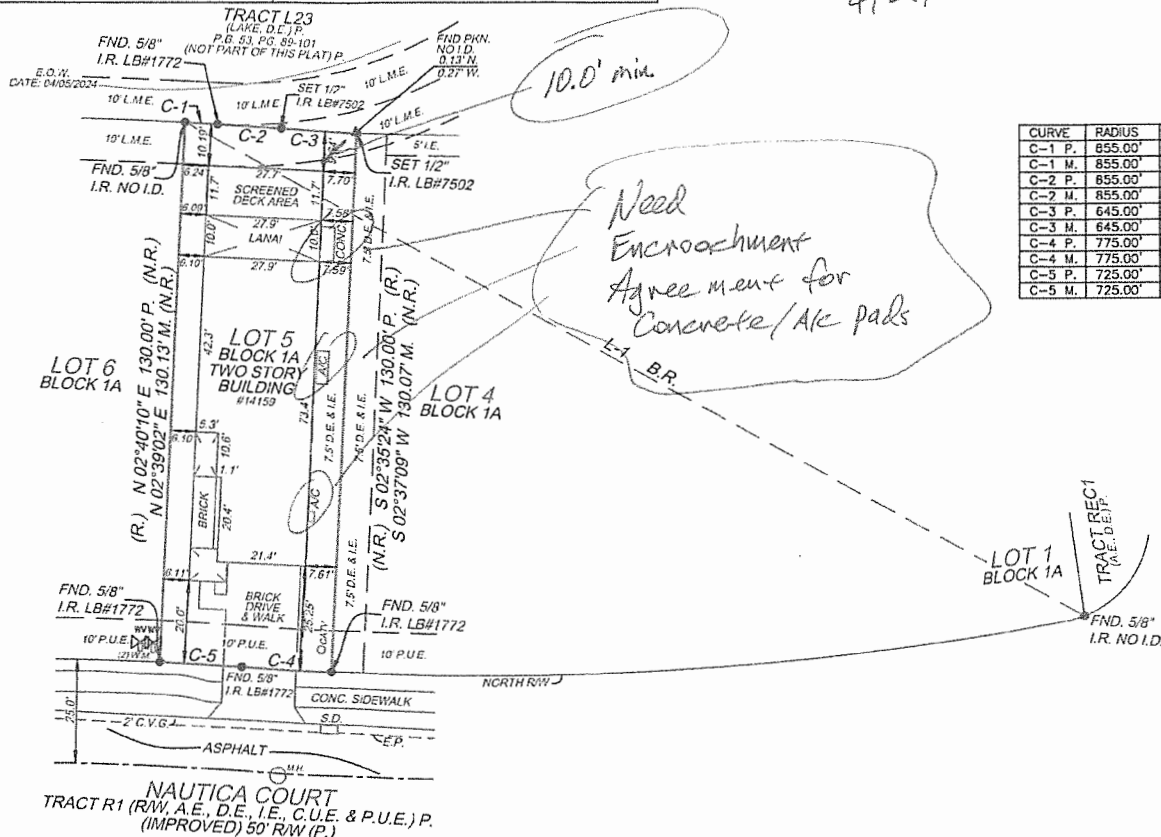 TRACT L23
(LAKE, D.E.) P.
P.B. 53, PG. 89-101
(NOT PART OF THIS PLAT) P.
FND. 5/8"
I.R. LB#1772
E.O.W.
DATE: 04/05/2024
FND PKN.
NO I.D.
0.13' N.
0.27' W.
10' L.M.E.
C-1
10' L.M.E.
SET 1/2"
I.R. LB#7502
10' L.M.E.
10' L.M.E.
C-2
C-3
10' L.M.E.
10.19'
5' I.E.
FND. 5/8"
I.R. NO I.D.
SET 1/2"
I.R. LB#7502
6.24'
27.7'
7.70'
11.7'
SCREENED
DECK AREA
11.7'
6.09'
27.9'
7.58'
10.0'
LANAI
CONC.
6.10'
27.9'
7.59'
7.5' D.E. & I.E.
10.0' min.
Need
Encroachment
Agreement for
Concrete/A/c pads
CURVE RADIUS
C-1 P. 855.00'
C-1 M. 855.00'
C-2 P. 855.00'
C-2 M. 855.00'
C-3 P. 645.00'
C-3 M. 645.00'
C-4 P. 775.00'
C-4 M. 775.00'
C-5 P. 725.00'
C-5 M. 725.00'
LOT 6
BLOCK 1A
(R.) N 02°40'10" E 130.00' P. (N.R.)
N 02°39'02" E 130.13' M. (N.R.)
42.3'
LOT 5
BLOCK 1A
TWO STORY
BUILDING
#14159
A/C
73.4'
7.5' D.E. & I.E.
7.5' D.E. & I.E.
(N.R.) S 02°35'24" W 130.00' P. (R.)
S 02°37'09" W 130.07' M. (N.R.)
LOT 4
BLOCK 1A
L-1 B.R.
6.10'
5.3'
10.6'
1.1'
BRICK
20.4'
A/C
21.4'
6.11'
7.61'
7.5' D.E. & I.E.
FND. 5/8"
I.R. LB#1772
BRICK
DRIVE
& WALK
20.0'
25.25'
FND. 5/8"
I.R. LB#1772
LOT 1
BLOCK 1A
TRACT REC1
(A.E., D.E.) P.
FND. 5/8"
I.R. NO I.D.
WV WV
10' P.U.E.
(2) W.M.
10' P.U.E.
CATV
10' P.U.E.
C-5
C-4
FND. 5/8"
I.R. LB#1772
NORTH R/W
CONC. SIDEWALK
25.0'
2' C.V.G.
S.D.
E.P.
ASPHALT
M.H.
NAUTICA COURT
TRACT R1 (R/W, A.E., D.E., I.E., C.U.E. & P.U.E.) P.
(IMPROVED) 50' R/W (P.)